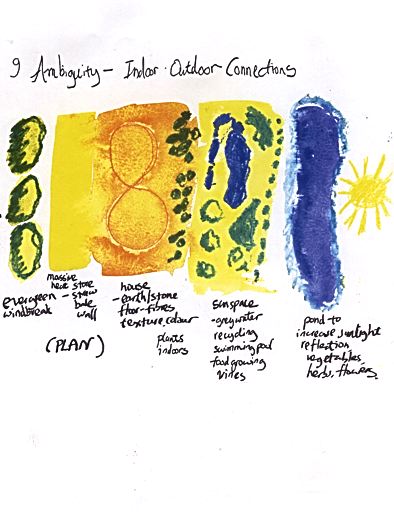 9 Ambiguity - Indoor · Outdoor Connections
evergreen
windbreak
massive
heat store
- straw
bale
wall
house
- earth/stone
floor - fibres
texture, colour
plants
indoors
sunspace
- greywater
recycling
swimming pool
food growing
vines
pond - to
increase sunlight
reflection
vegetables,
herbs, flowers.
(PLAN)